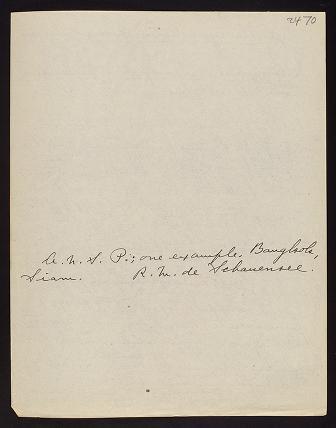 2470
A. N. S. P.; one example. Bangkok,
Siam. R. M. de Schauensee.